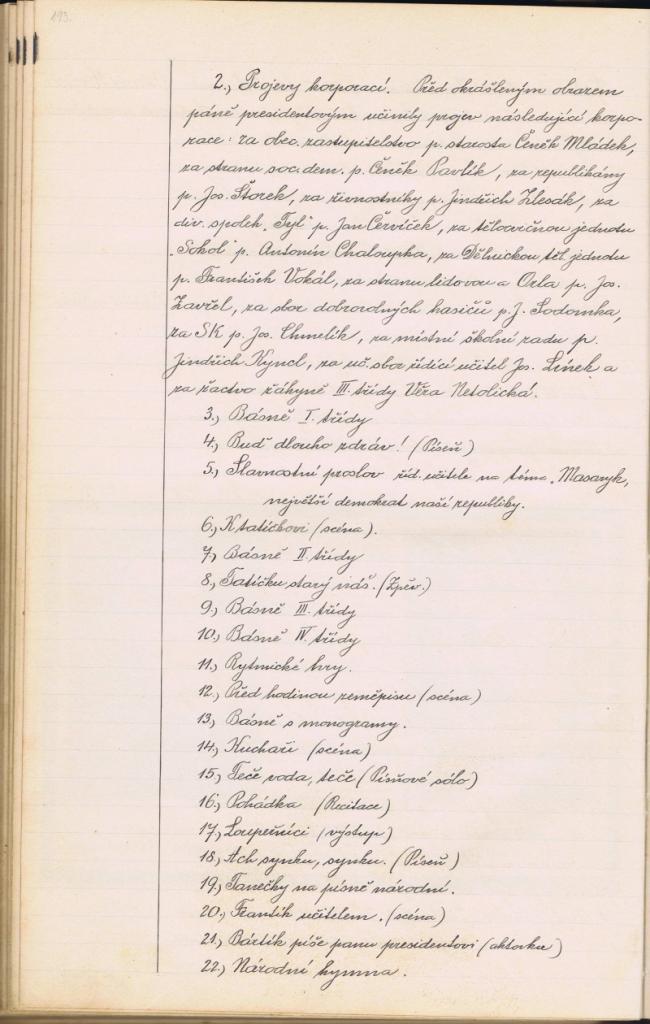 193.
2., Projevy korporací. Před okrášleným obrazem
páně presidentovým učinily projev následující korpo-
race: za obec. zastupitelstvo p. starosta Čeněk Mládek,
za stranu soc. dem. p. Čeněk Pavlík, za republikány
p. Jos. Štorek, za živnostníky p. Jindřich Zlesák, za
div. spolek „Tyl" p. Jan Červíček, za tělocvičnou jednotu
„Sokol" p. Antonín Chaloupka, za Dělnickou těl. jednotu
p. František Vokál, za stranu lidovou a Orla p. Jos.
Zavřel, za sbor dobrovolných hasičů p. J. Sodomka,
za SK p. Jos. Chmelík, za místní školní radu p.
Jindřich Kyncl, za uč. sbor řídící učitel Jos. Línek a
za žactvo žákyně III. třídy Věra Netolická.
3., Básně I. třídy
4., Buď dlouho zdráv! (Píseň)
5., Slavnostní proslov říd. učitele na téma „Masaryk,
největší demokrat naší republiky.
6., K tatíčkovi (scéna).
7., Básně II. třídy
8., Tatíčku starý náš. (Zpěv.)
9., Básně III. třídy
10., Básně IV. třídy
11., Rytmické hry.
12., Před hodinou zeměpisu (scéna)
13., Básně s monogramy.
14., Kuchaři (scéna)
15., Teče voda, teče (Písňové sólo)
16., Pohádka (Recitace)
17., Loupežníci (výstup)
18., Ach synku, synku. (Píseň)
19., Tanečky na písně národní.
20., Frantík učitelem. (scéna)
21., Bártík píše panu presidentovi (aktovka)
22., Národní hymna.